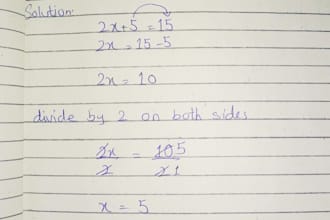 Solution.
2x+5=15
2x=15-5
2x=10
divide by 2 on both sides
2x/2 = 10 5/2 1
x=5